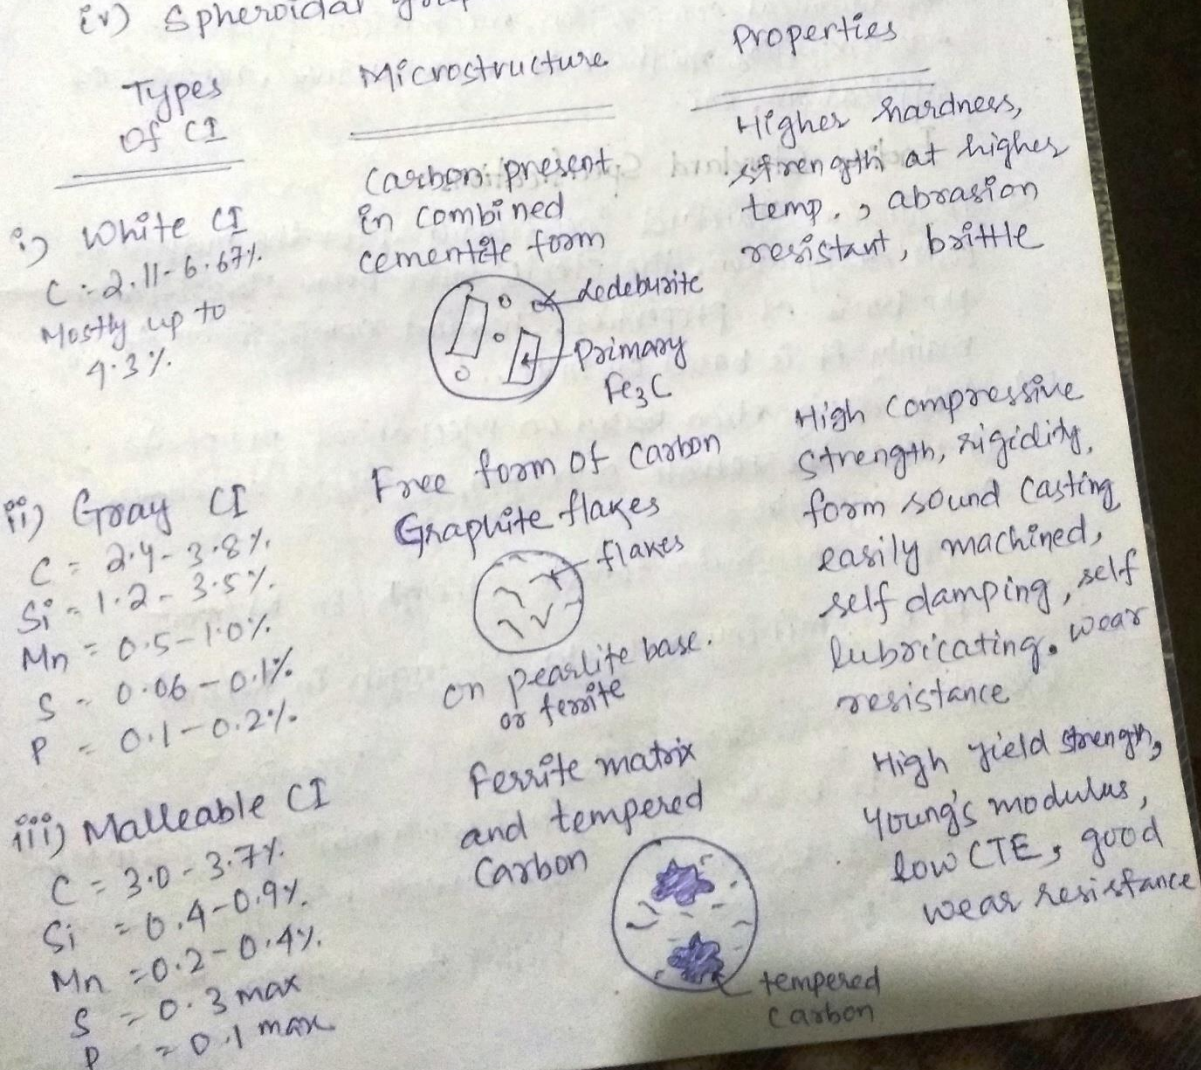 iv) Spheroidal
Types
Of CI
Microstructure
Properties
i) White CI
C = 2.11-6.67%.
Mostly up to
4.3%.
Carbon present
in combined
cementite form
Ledeburite
Primary
Fe3C
Higher hardness,
strength at higher
temp., abrasion
resistant, brittle
ii) Gray CI
C = 2.4-3.8%.
Si = 1.2-3.5%.
Mn = 0.5-1.0%.
S = 0.06-0.1%.
P = 0.1-0.2%.
Free form of Carbon
Graphite flakes
flakes
on pearlite base.
or ferrite
High Compressive
Strength, rigidity,
form sound Casting
easily machined,
self damping, self
lubricating. wear
resistance
iii) Malleable CI
C = 3.0-3.7%.
Si = 0.4-0.9%.
Mn = 0.2-0.4%.
S = 0.3 max
P = 0.1 max
Ferrite matrix
and tempered
Carbon
tempered
Carbon
High Yield Strength,
Young's modulus,
low CTE, good
wear resistance